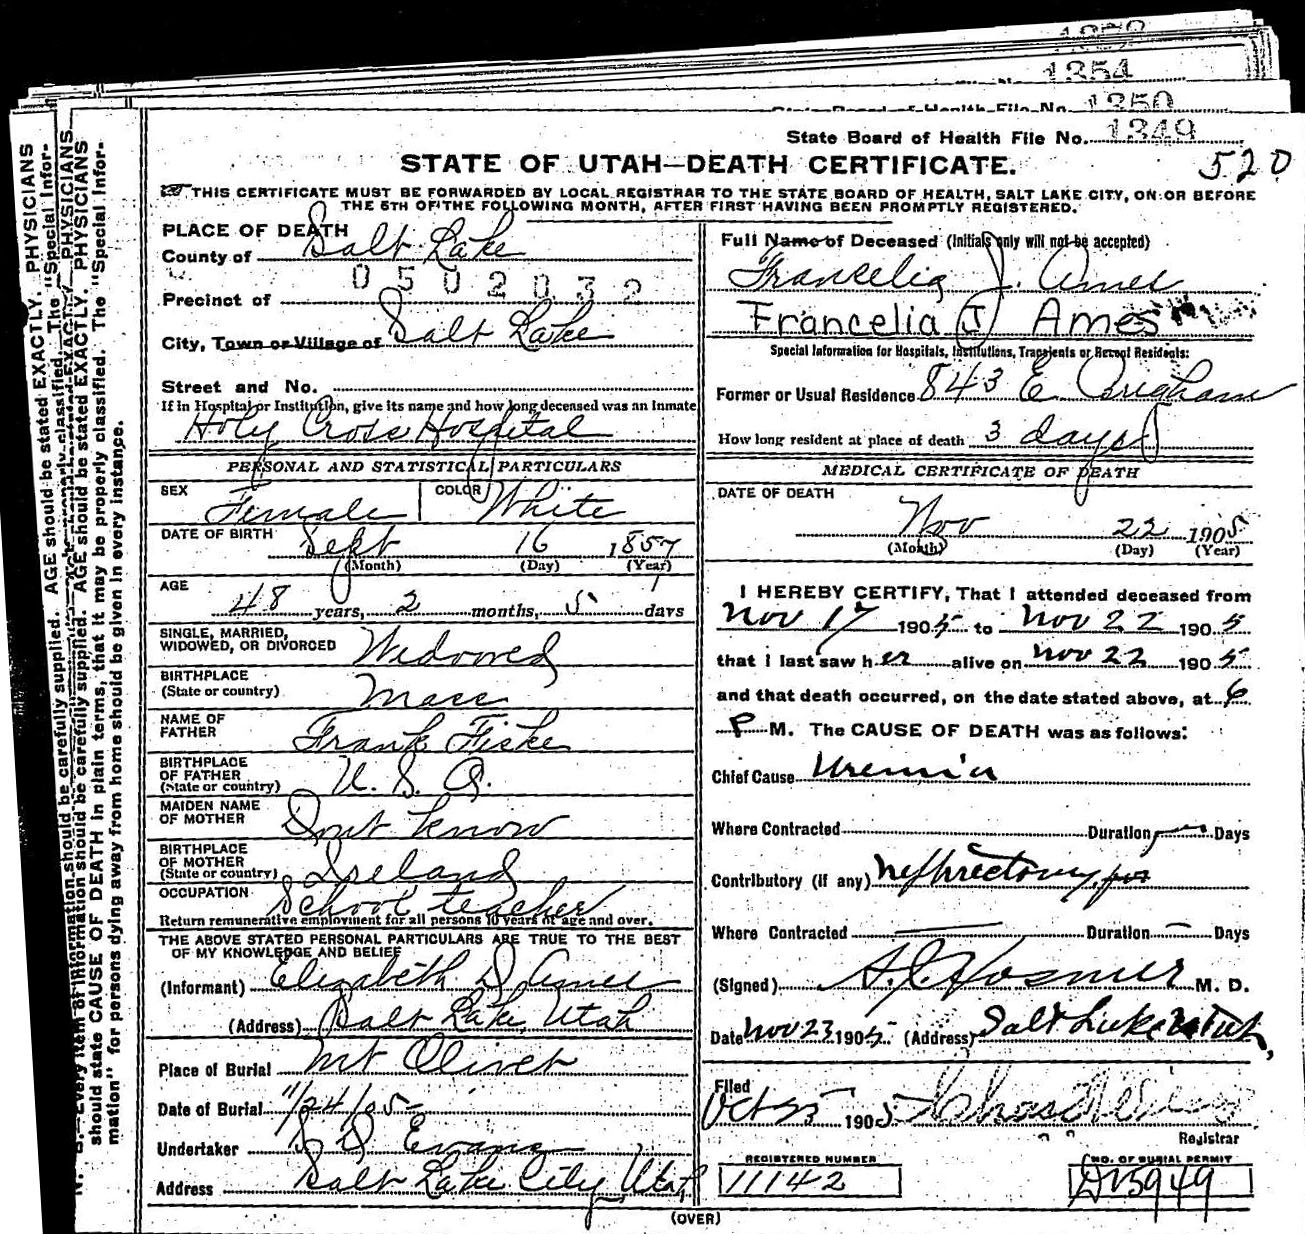 1354
1350
State Board of Health File No. 1349
520
STATE OF UTAH—DEATH CERTIFICATE.
THIS CERTIFICATE MUST BE FORWARDED BY LOCAL REGISTRAR TO THE STATE BOARD OF HEALTH, SALT LAKE CITY, ON OR BEFORE
THE 5TH OF THE FOLLOWING MONTH, AFTER FIRST HAVING BEEN PROMPTLY REGISTERED.
PLACE OF DEATH
County of Salt Lake
0502032
Precinct of
City, Town or Village of Salt Lake
Street and No.
If in Hospital or Institution, give its name and how long deceased was an Inmate
Holy Cross Hospital
PERSONAL AND STATISTICAL PARTICULARS
SEX Female COLOR White
DATE OF BIRTH Sept 16 1857
(Month) (Day) (Year)
AGE 48 years, 2 months, 5 days
SINGLE, MARRIED,
WIDOWED, OR DIVORCED Widowed
BIRTHPLACE
(State or country) Mass
NAME OF
FATHER Frank Fiske
BIRTHPLACE
OF FATHER
(State or country) U. S. A.
MAIDEN NAME
OF MOTHER Dont know
BIRTHPLACE
OF MOTHER
(State or country) Ireland
OCCUPATION School teacher
Return remunerative employment for all persons 10 years of age and over.
THE ABOVE STATED PERSONAL PARTICULARS ARE TRUE TO THE BEST
OF MY KNOWLEDGE AND BELIEF
(Informant) Elizabeth D Ames
(Address) Salt Lake, Utah
Place of Burial Mt Olivet
Date of Burial 11/24/05
Undertaker S D Evans
Address Salt Lake City, Utah
Full Name of Deceased (Initials only will not be accepted)
Francelia J. Ames
Francelia J Ames
Special Information for Hospitals, Institutions, Transients or Recent Residents:
Former or Usual Residence 843 E Brigham
How long resident at place of death 3 days
MEDICAL CERTIFICATE OF DEATH
DATE OF DEATH
Nov 22 1905
(Month) (Day) (Year)
I HEREBY CERTIFY, That I attended deceased from
Nov 17 1905 to Nov 22 1905
that I last saw her alive on Nov 22 1905
and that death occurred, on the date stated above, at 6
P M. The CAUSE OF DEATH was as follows:
Chief Cause Uremia
Where Contracted Duration Days
Contributory (if any) Nephrectomy
Where Contracted Duration Days
(Signed) Hosmer M. D.
Date Nov 23 1905 (Address) Salt Lake Utah,
Filed
Oct 25 1905 Chas
Registrar
REGISTERED NUMBER
11142
NO. OF BURIAL PERMIT
(OVER)
N. B.—Every item of information should be carefully supplied. AGE should be stated EXACTLY. PHYSICIANS
should state CAUSE OF DEATH in plain terms, that it may be properly classified. The "Special Infor-
mation" for persons dying away from home should be given in every instance.